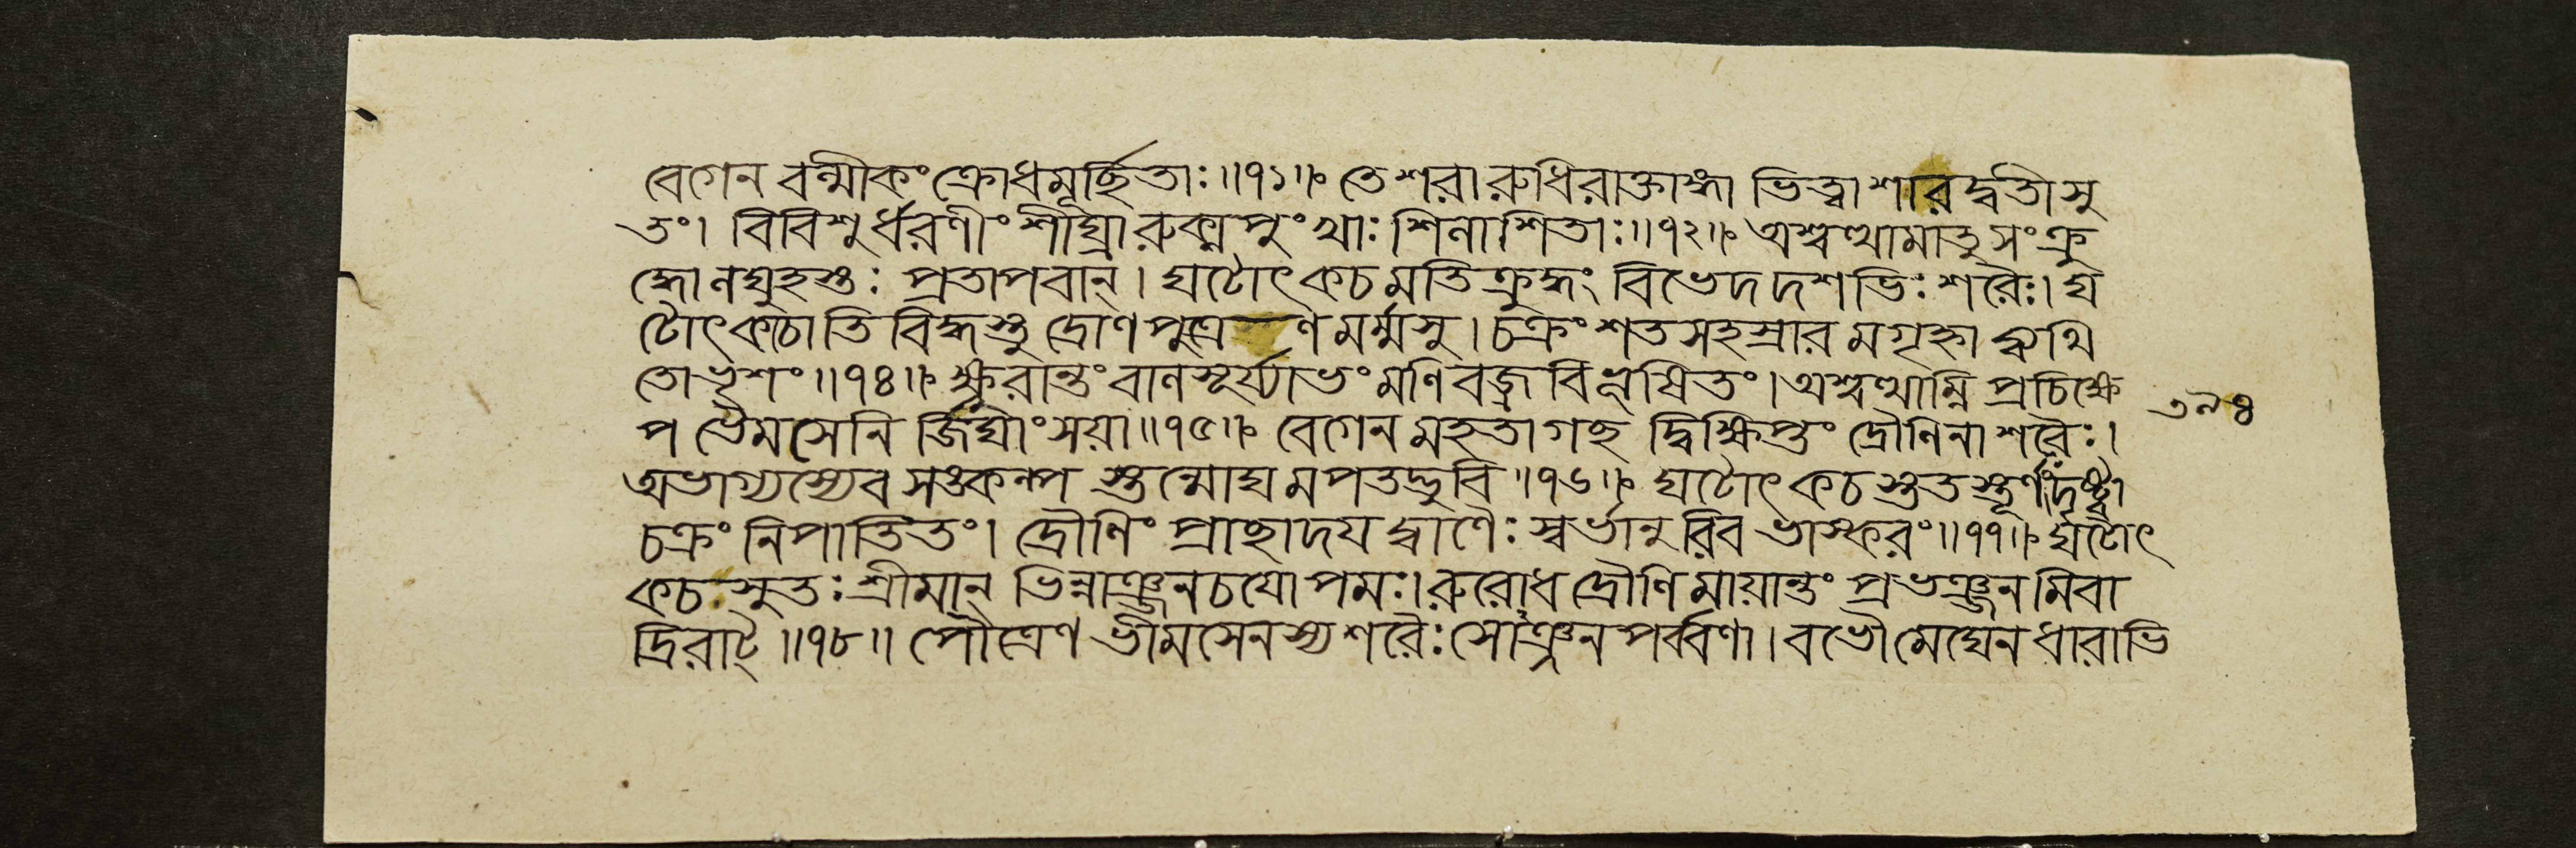 বেগেন বল্মীকং ক্রোধমূর্ছিতাঃ॥৭১॥ তে শরা রুধিরাক্তাঙ্গা ভিত্ত্বা শারদ্বতীসু
তং। বিবিশুর্ধরণীং শীঘ্রা রুক্মপুংখাঃ শিলাশিতাঃ॥৭২॥ অশ্বত্থামা তু সংক্রু
দ্ধো লঘুহস্তঃ প্রতাপবান্। ঘটোৎকচমতিক্রুদ্ধং বিভেদ দশভিঃ শরৈঃ। ঘ
টোৎকচাতিবিদ্ধস্তু দ্রোণপুত্রেণ মর্ম্মসু। চক্রং শতসহস্রারমগৃহ্নাদ্ব্যথি
তো ভৃশং॥৭৪॥ ক্ষুরান্তং বালসূর্য্যাভং মণিবজ্রবিভূষিতং। অশ্বত্থাম্নি প্রচিক্ষে
প ভৈমসেনির্জিঘাংসয়া॥৭৫॥ বেগেন মহতাগচ্ছদ্বিক্ষিপ্তং দ্রৌণিনা শরৈঃ।
অভাগ্যস্যেব সঙ্কল্পস্তন্মোঘমপতদ্ভুবি॥৭৬॥ ঘটোৎকচস্ততস্তূর্ণং দৃষ্ট্বা
চক্রং নিপাতিতং। দ্রৌণিং প্রাচ্ছাদয়দ্বাণৈঃ স্বর্ভানুরিব ভাস্করং॥৭৭॥ ঘটোৎ
কচসুতঃ শ্রীমান্ ভিন্নাঞ্জনচয়োপমঃ। রুরোধ দ্রৌণিমায়ান্তং প্রভঞ্জনমিবা
দ্রিরাট্॥৭৮॥ পৌত্রেণ ভীমসেনস্য শরৈঃ সোঞ্জনপর্ব্বণা। বভৌ মেঘেন ধারাভি